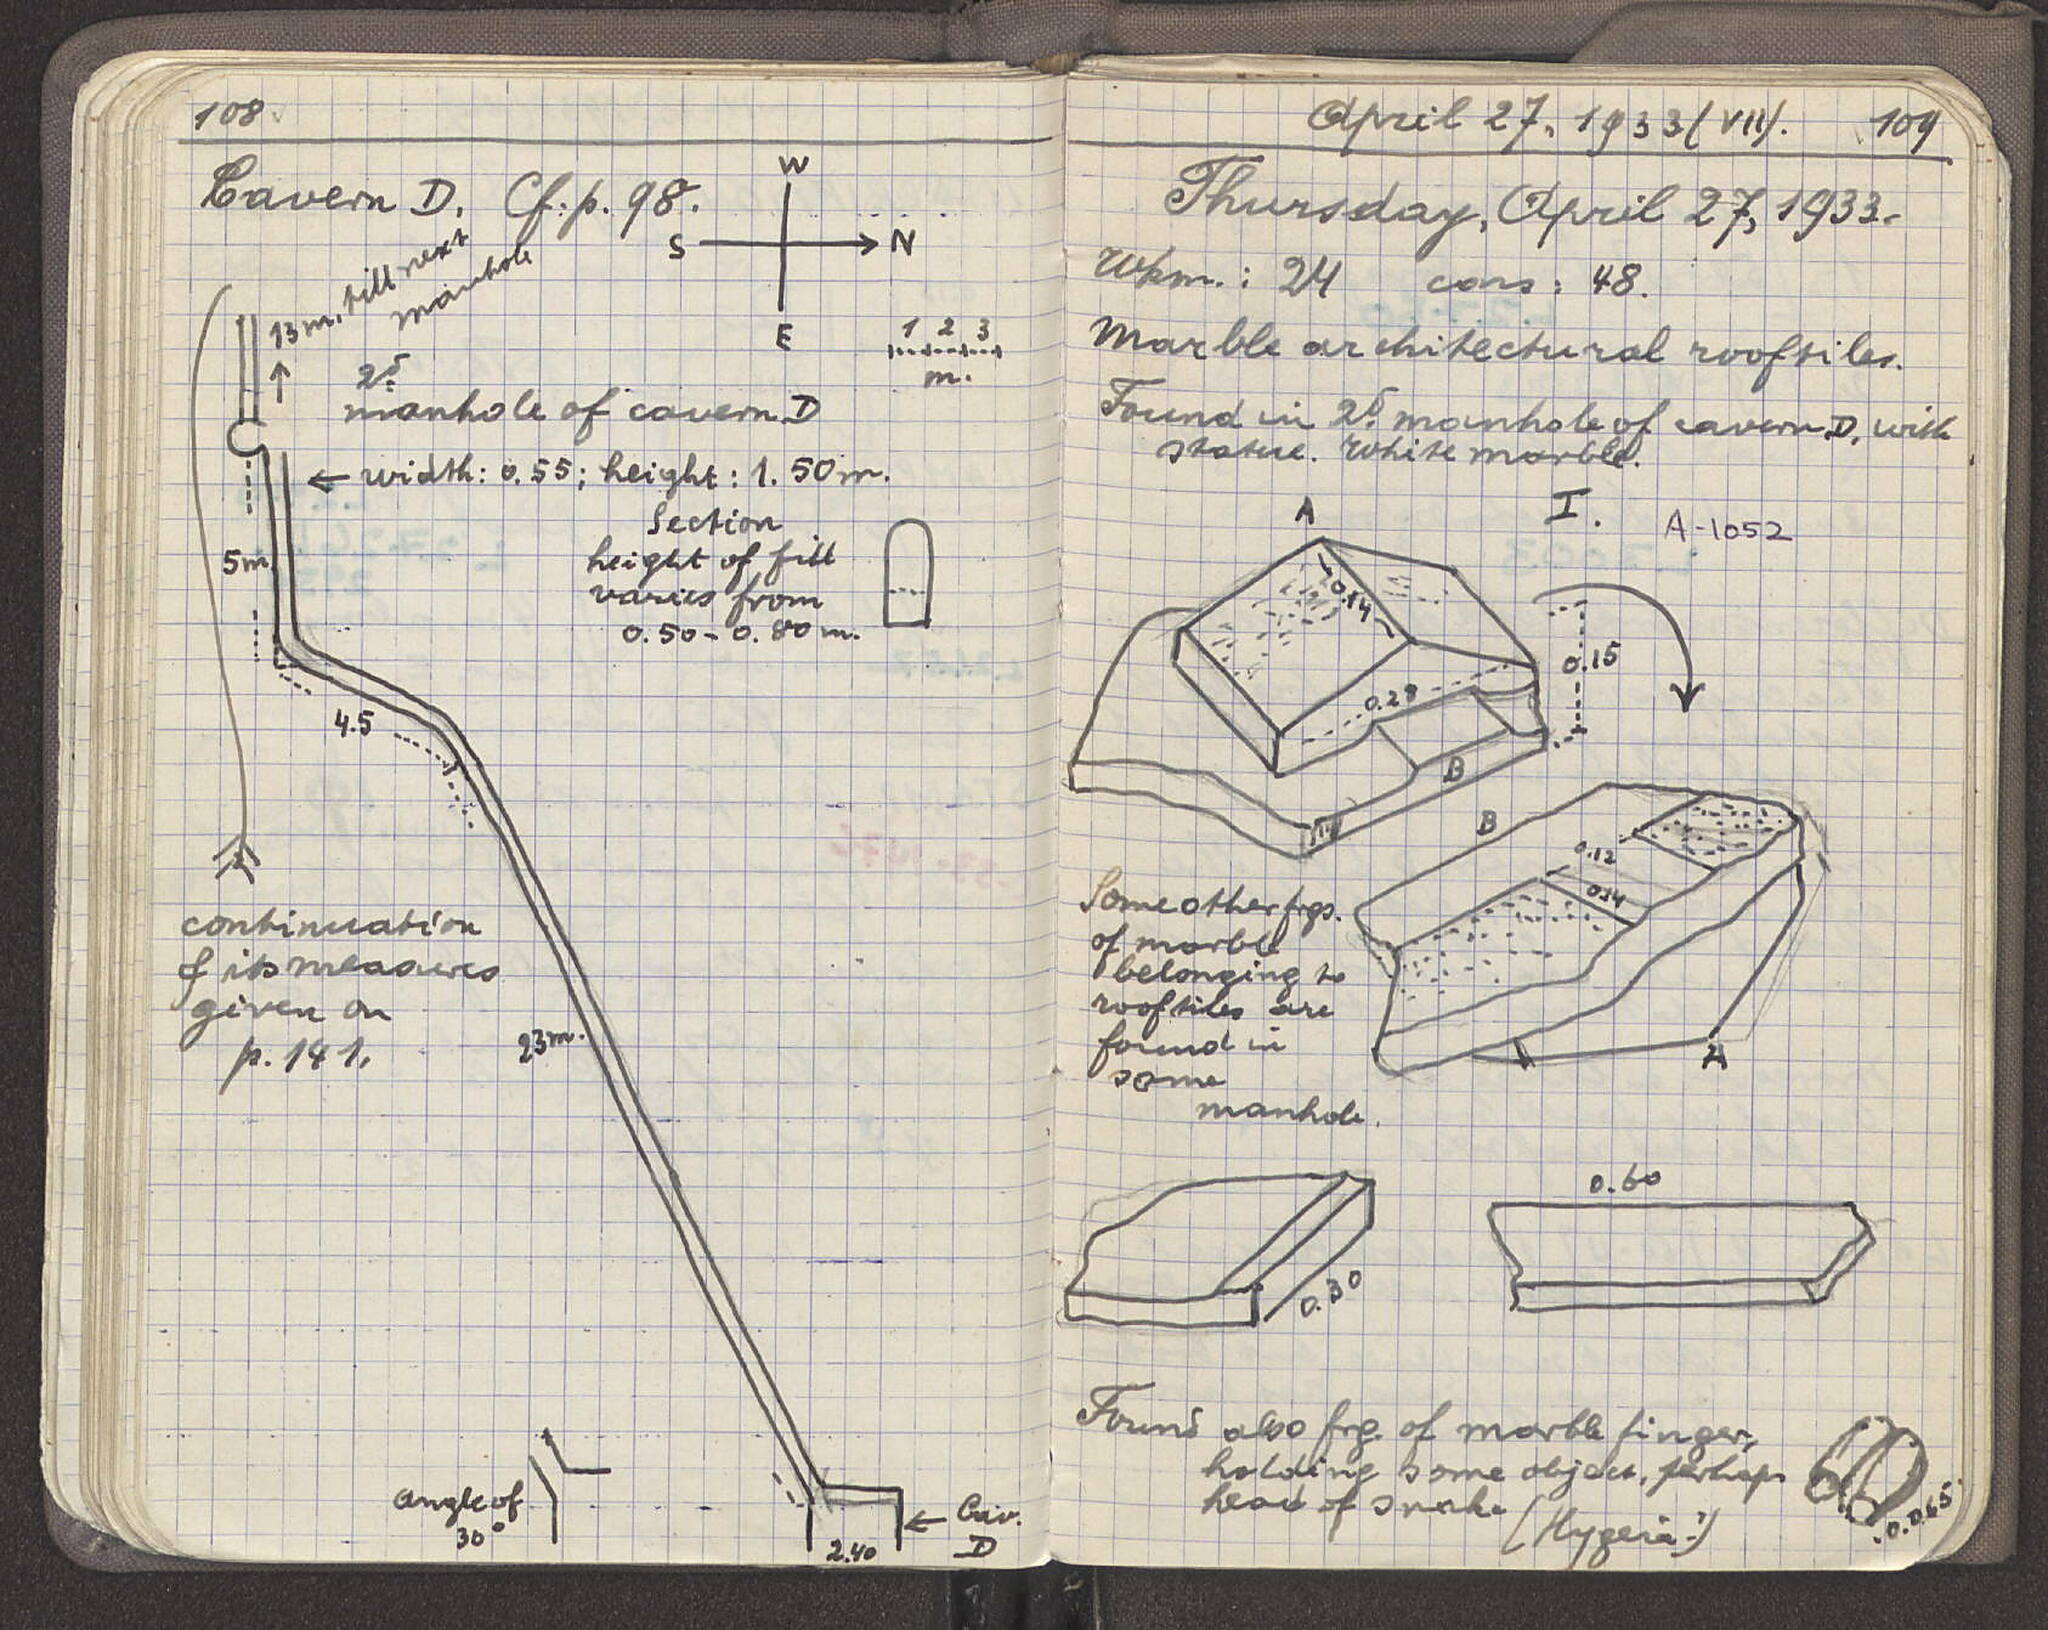 108
Cavern D. Cf. p. 98.
W
S N
E
1 2 3
m.
13 m. till next
manhole
2d
manhole of cavern D
← width: 0.55; height: 1.50 m.
Section
height of fill
varies from
0.50 - 0.80 m.
5m
4.5
continuation
of its measures
given on
p. 141.
23m.
angle of
30°
2.40
← Cav.
D
April 27, 1933 (VII). 109
Thursday, April 27, 1933.
Wkm.: 24 cars: 48.
Marble architectural rooftiles.
Found in 2d. manhole of cavern D, with
statue. White marble.
I. A-1052
A
0.14
0.15
0.28
B
B
0.12
0.14
A
Some other frgs.
of marble
belonging to
rooftiles are
found in
same
manhole.
0.30
0.60
Found also frg. of marble finger,
holding some object, perhaps
head of snake
(Hygeia?)
0.065